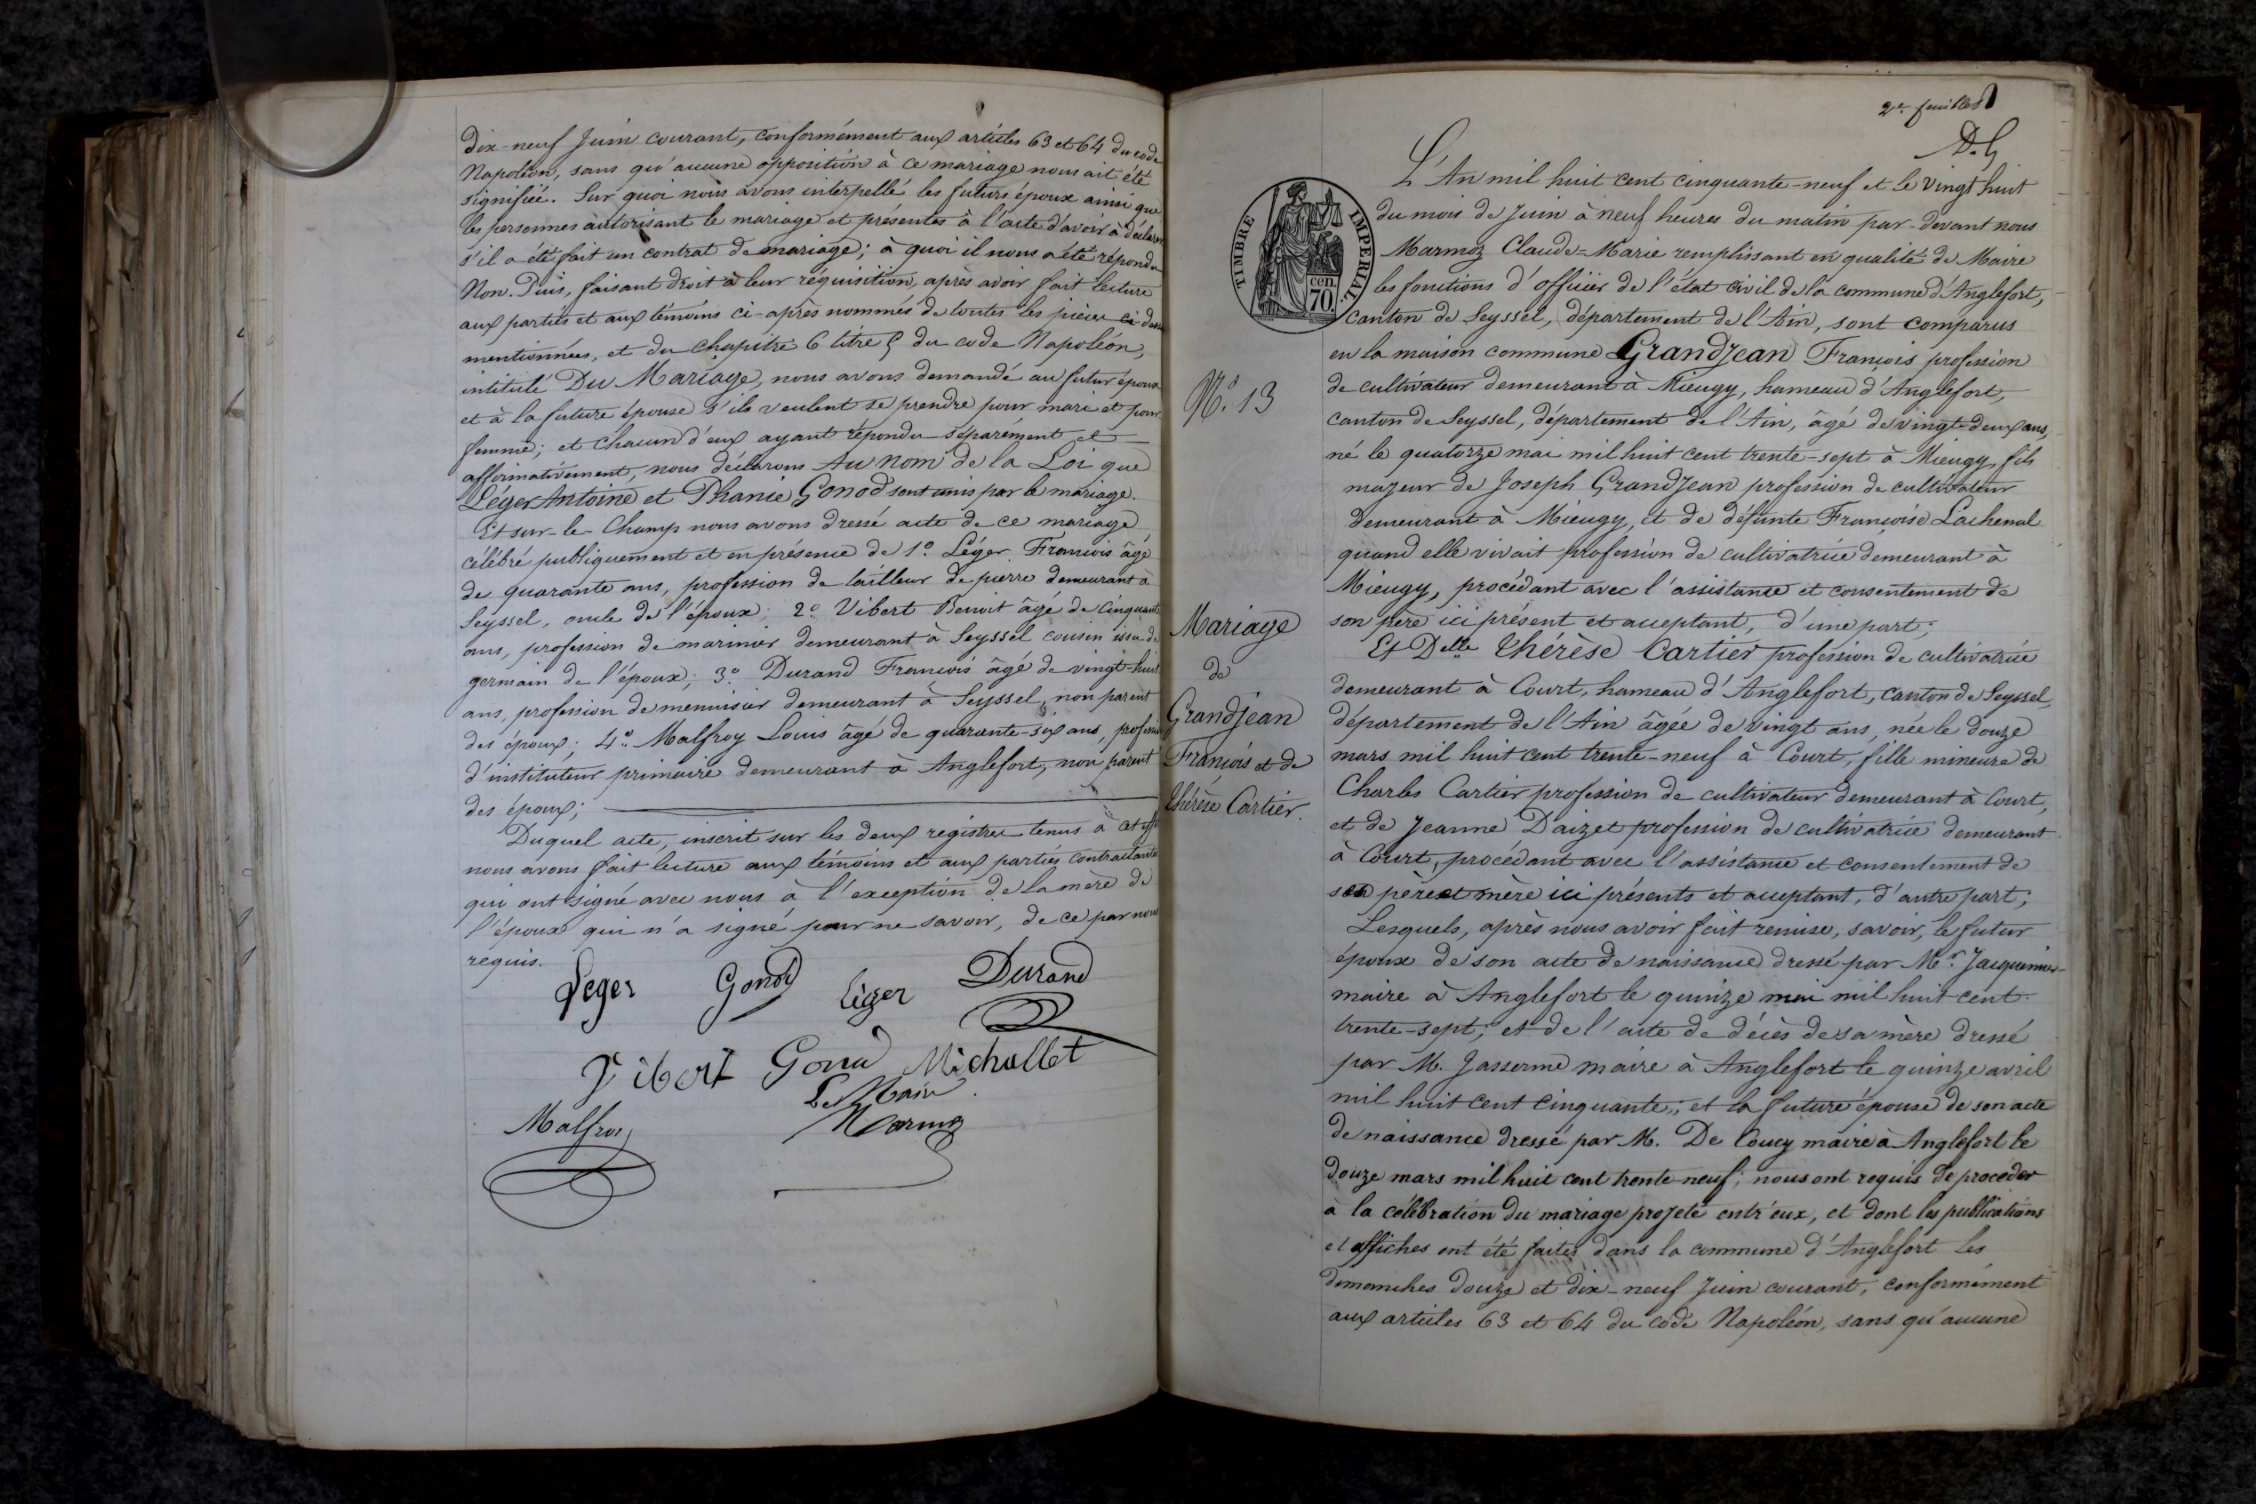 Dix-neuf Juin courant, conformément aux articles 63 et 64 du code
Napoléon, sans qu'aucune opposition à ce mariage nous ait été
signifiée. Sur quoi nous avons interpellé les futurs époux ainsi que
les personnes autorisant le mariage et présentes à l'acte d'avoir à déclarer
s'il a été fait un contrat de mariage; à quoi il nous a été répondu
Non. Puis, faisant droit à leur réquisition, après avoir fait lecture
aux parties et aux témoins ci-après nommés de toutes les pièces ci-dessus
mentionnées, et du chapitre 6 titre 5 du code Napoléon,
intitulé Du Mariage, nous avons demandé au futur époux
et à la future épouse s'ils veulent se prendre pour mari et pour
femme; et chacun d'eux ayant répondu séparément et
affirmativement, nous déclarons Au nom de la Loi que
Léger Antoine et Phanie Gonod sont unis par le mariage.
Et sur-le-Champ nous avons dressé acte de ce mariage
célébré publiquement et en présence de 1º Léger François âgé
de quarante ans, profession de tailleur de pierre demeurant à
Seyssel, oncle de l'époux; 2º Vibert Benoit âgé de cinquante
ans, profession de marinier demeurant à Seyssel cousin issu de
germain de l'époux; 3º Durand François âgé de vingt-huit
ans, profession de menuisier demeurant à Seyssel, non parent
des époux; 4º Malfroy Louis âgé de quarante-six ans, profession
d'instituteur primaire demeurant à Anglefort, non parent
des époux;
Duquel acte, inscrit sur les deux registres tenus à cet effet
nous avons fait lecture aux témoins et aux parties contractantes
qui ont signé avec nous à l'exception de la mère de
l'époux qui n'a signé pour ne savoir, de ce par nous
requis.
Leger Gonod Léger Durand
Vibert Gonod Michallet
Le Maire
Malfroy Marmoz
2e feuillet
D.G
TIMBRE IMPERIAL.
cen. 70.
L'An mil huit cent cinquante-neuf et le vingt huit
du mois de Juin à neuf heures du matin par-devant nous
Marmoz Claude-Marie remplissant en qualité de Maire
les fonctions d'officier de l'état civil de la commune d'Anglefort,
canton de Seyssel, département de l'Ain, sont comparus
en la maison commune Grandjean François profession
de cultivateur demeurant à Mieugy, hameau d'Anglefort,
Nº. 13
canton de Seyssel, département de l'Ain, âgé de vingt-deux ans,
né le quatorze mai mil huit cent trente-sept à Mieugy, fils
majeur de Joseph Grandjean profession de cultivateur
demeurant à Mieugy, et de défunte Françoise Lachenal
quand elle vivait profession de cultivatrice demeurant à
Mieugy, procédant avec l'assistance et consentement de
son père ici présent et acceptant, d'une part;
Et Delle Thérèse Cartier profession de cultivatrice
demeurant à Court, hameau d'Anglefort, canton de Seyssel,
département de l'Ain âgée de vingt ans, née le douze
mars mil huit cent trente-neuf à Court, fille mineure de
Charles Cartier profession de cultivateur demeurant à Court,
et de Jeanne Daizet profession de cultivatrice demeurant
à Court, procédant avec l'assistance et consentement de
ses père et mère ici présents et acceptant, d'autre part;
Mariage
de
Grandjean
François et de
Thérèse Cartier.
Lesquels, après nous avoir fait remise, savoir, le futur
époux de son acte de naissance dressé par Mr. Jacquemier
maire à Anglefort le quinze mai mil huit cent
trente-sept; et de l'acte de décès de sa mère dressé
par M. Jasserme maire à Anglefort le quinze avril
mil huit cent cinquante; et la future épouse de son acte
de naissance dressé par M. De Coucy maire à Anglefort le
douze mars mil huit cent trente-neuf; nous ont requis de procéder
à la célébration du mariage projeté entr'eux, et dont les publications
et affiches ont été faites dans la commune d'Anglefort les
dimanches douze et dix-neuf Juin courant, conformément
aux articles 63 et 64 du code Napoléon, sans qu'aucune